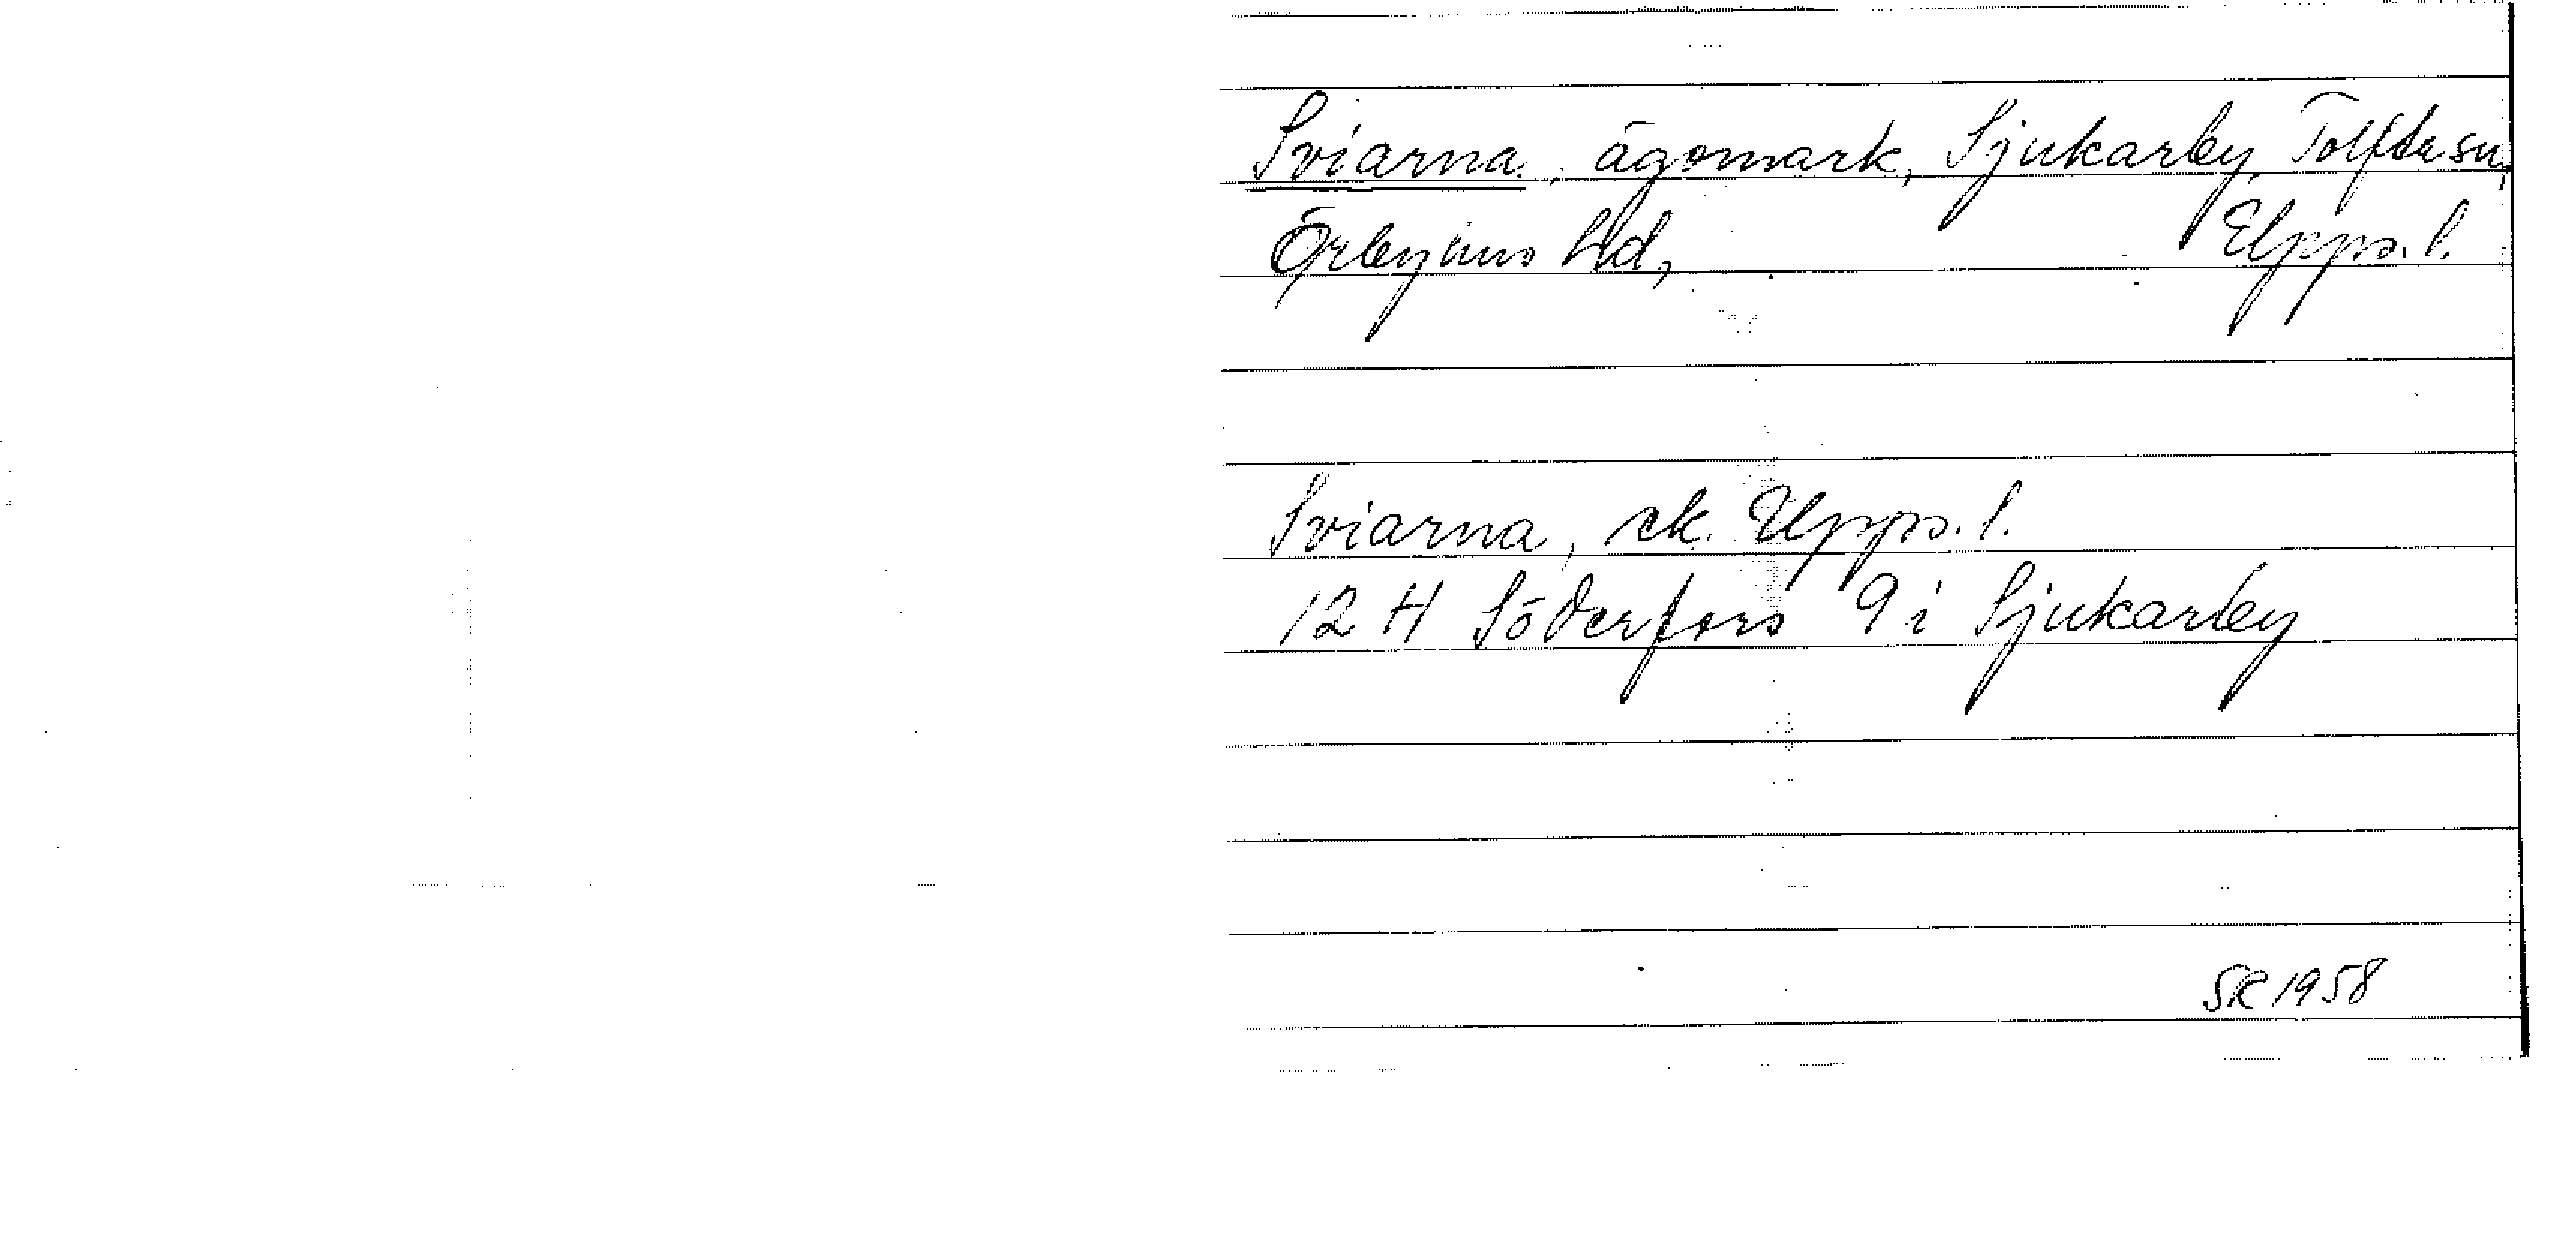 Sviarna, ägomark, Sjukarby, Tolfta sn,
Örbyhus hd, Upps. l.
Sviarna, ek. Upps. l.
12 H Söderfors 9 i Sjukarby
SR 1958